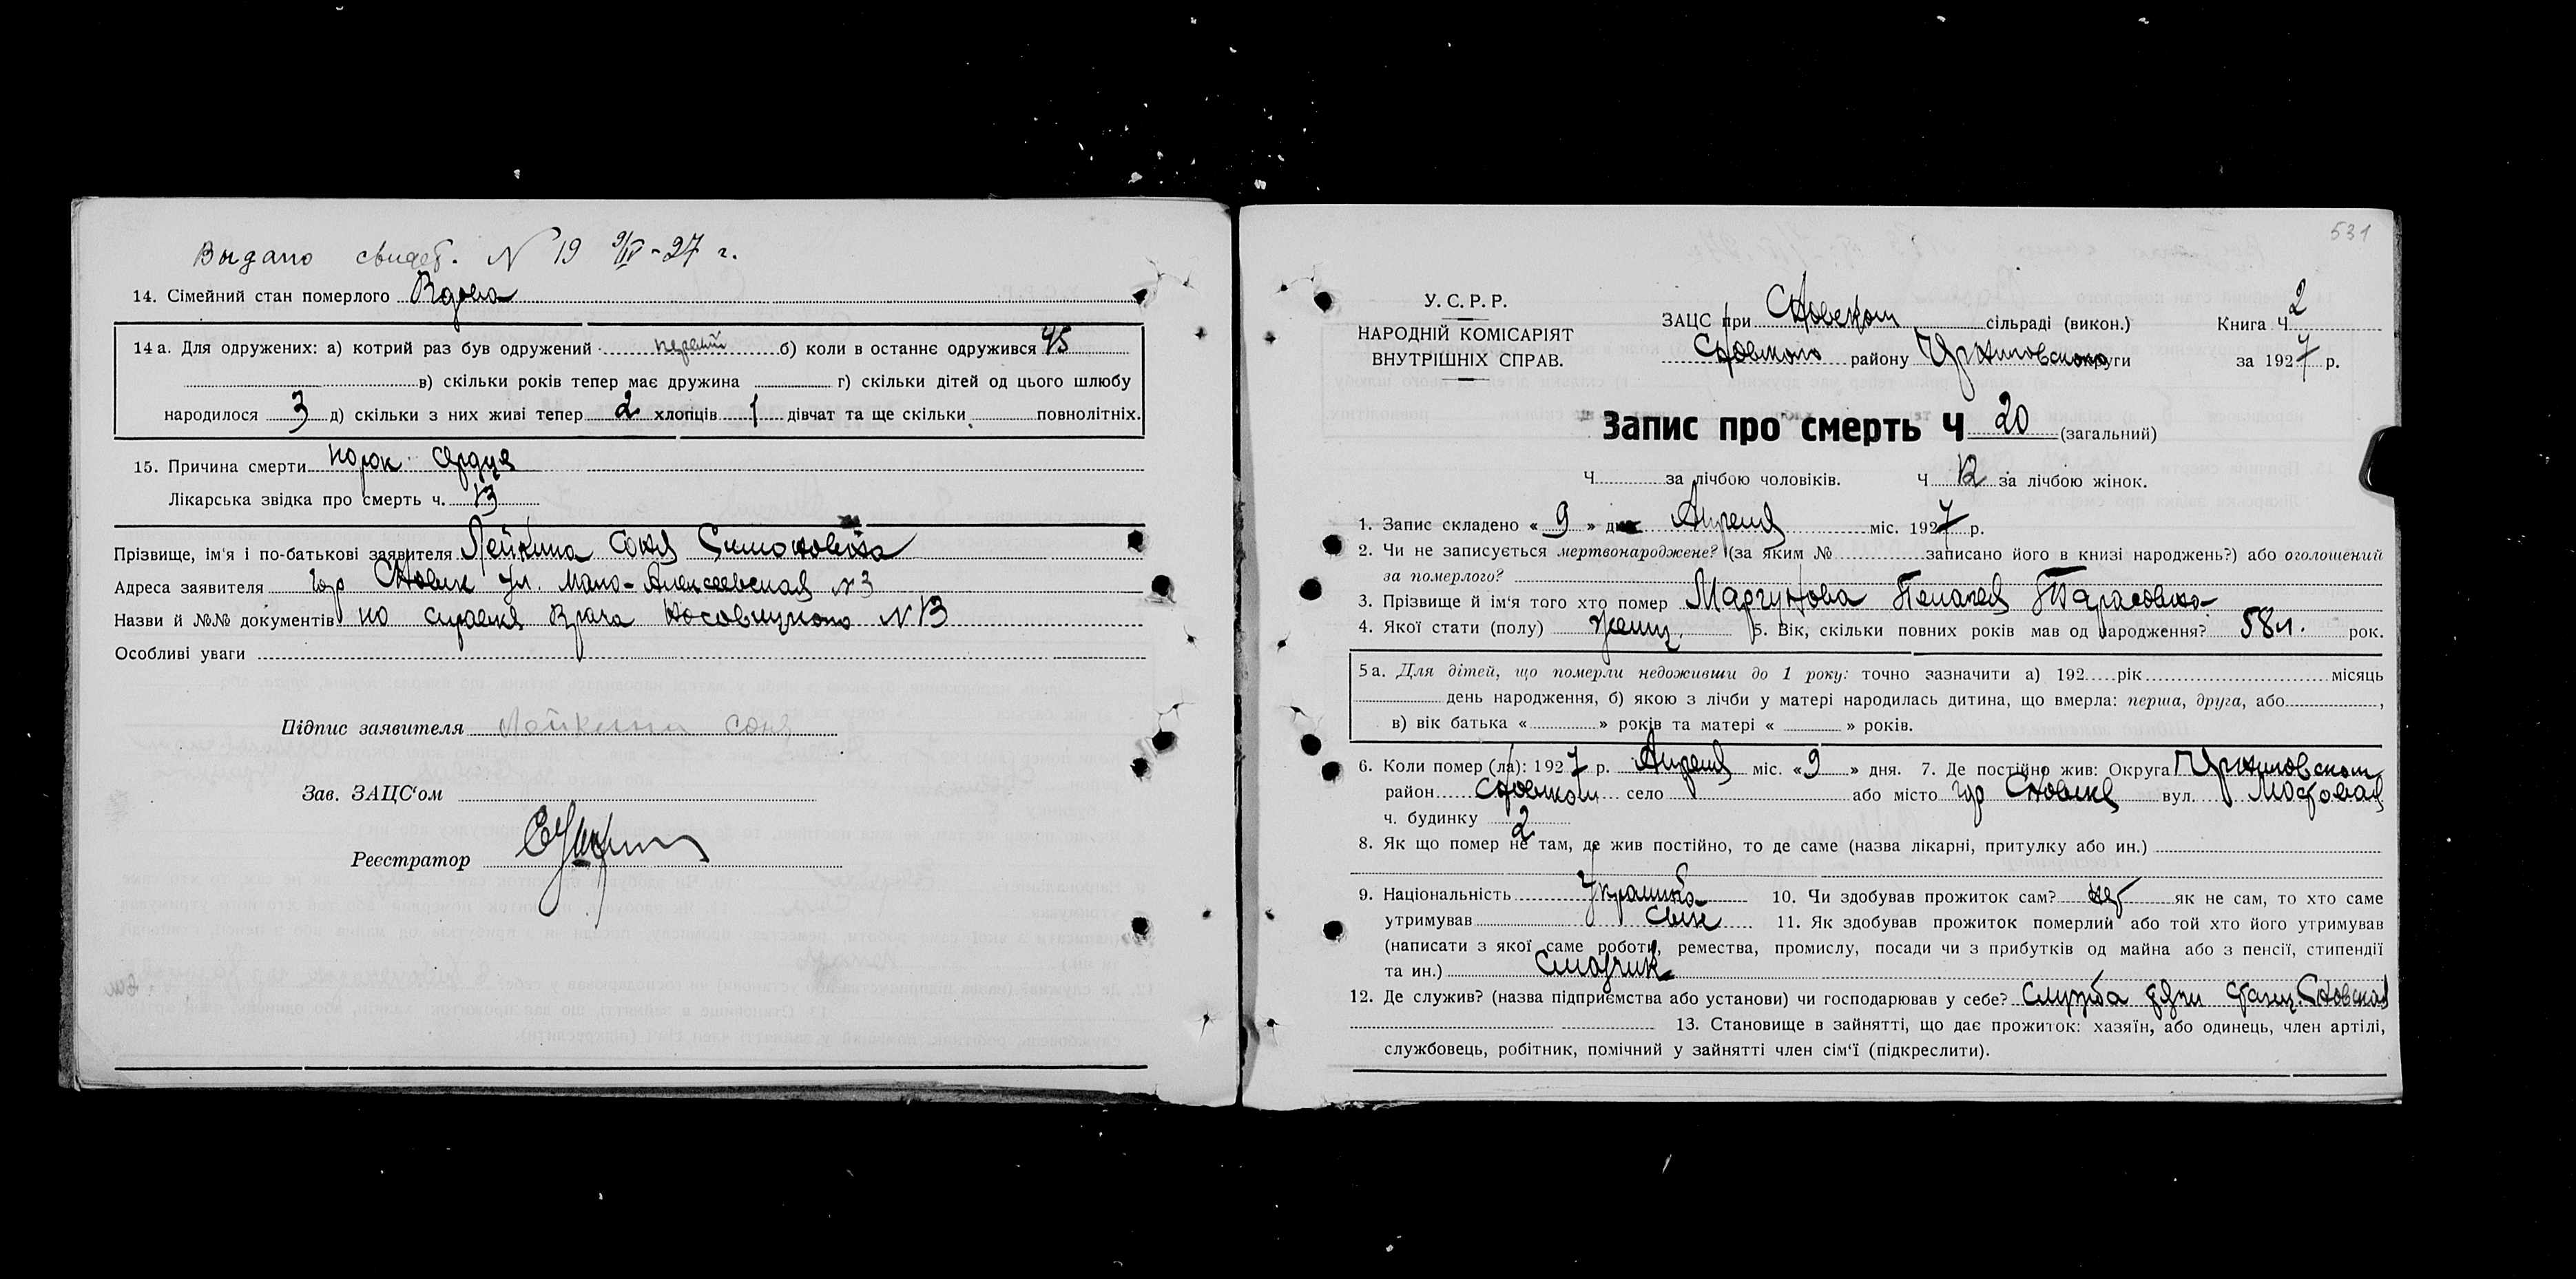 Выдано свидет. N 19 9/IV-27 г.
14. Сімейний стан померлого Вдова
14 а. Для одружених: а) котрий раз був одружений первый б) коли в останнє одружився 45
в) скільки років тепер має дружина г) скільки дітей од цього шлюбу
народилося 3 д) скільки з них живі тепер 2 хлопців 1 дівчат та ще скільки повнолітніх.
15. Причина смерти порок сердця
Лікарська звідка про смерть ч. 13
Прізвище, ім'я і по-батькові заявителя Лейкина Соня
Адреса заявителя гор Сновск ул. Мало-Алексеевская N 3
Назви й №№ документів справка Врача N 13
Особливі уваги
Підпис заявителя Лейкина Соня
Зав. ЗАЦС'ом
Реєстратор
531
У. С. Р. Р.
НАРОДНІЙ КОМІСАРІЯТ
ВНУТРІШНІХ СПРАВ.
ЗАЦС при Сновском сільраді (викон.) Книга Ч. 2
Сновского району Черниговского округи за 1927 р.
Запис про смерть Ч 20 (загальний)
Ч за лічбою чоловіків. Ч 12 за лічбою жінок.
1. Запис складено « 9 » дня Апреля міс. 1927 р.
2. Чи не записується мертвонароджене? (за яким № записано його в книзі народжень?) або оголошений
за померлого?
3. Прізвище й ім'я того хто помер Маргунова Пелагея Тарасовна
4. Якої стати (полу) женщ. 5. Вік, скільки повних років мав од народження? 58 л. рок.
5 а. Для дітей, що померли недоживши до 1 року: точно зазначити а) 192 рік місяць
день народження, б) якою з лічби у матері народилась дитина, що вмерла: перша, друга, або ,
в) вік батька « » років та матері « » років.
6. Коли помер (ла): 1927 р. Апреля міс. «9» дня. 7. Де постійно жив: Округа Черниговском
район Сновском село або місто гор Сновске вул. Мостовая
ч. будинку 2
8. Як що помер не там, де жив постійно, то де саме (назва лікарні, притулку або ин.)
9. Національність Украинка 10. Чи здобував прожиток сам? нет як не сам, то хто саме
утримував сын 11. Як здобував прожиток померлий або той хто його утримував
(написати з якої саме роботи, ремества, промислу, посади чи з прибутків од майна або з пенсії, стипендії
та ин.) смазчик
12. Де служив? (назва підприємства або установи) чи господарював у себе? служба тяги станц. Сновская
13. Становище в зайнятті, що дає прожиток: хазяїн, або одинець, член артілі,
службовець, робітник, помічний у зайнятті член сім'ї (підкреслити).